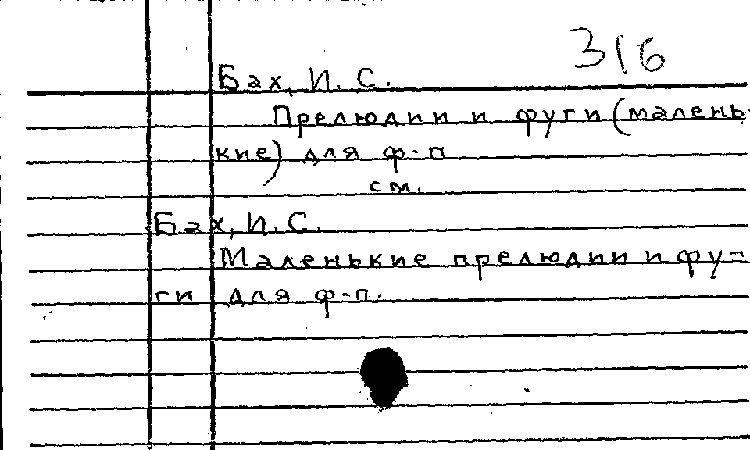 316
Бах, И. С.
Прелюдии и фуги (малень-
кие) для ф-п
см.
Бах, И. С.
Маленькие прелюдии и фу-
ги для ф-п.